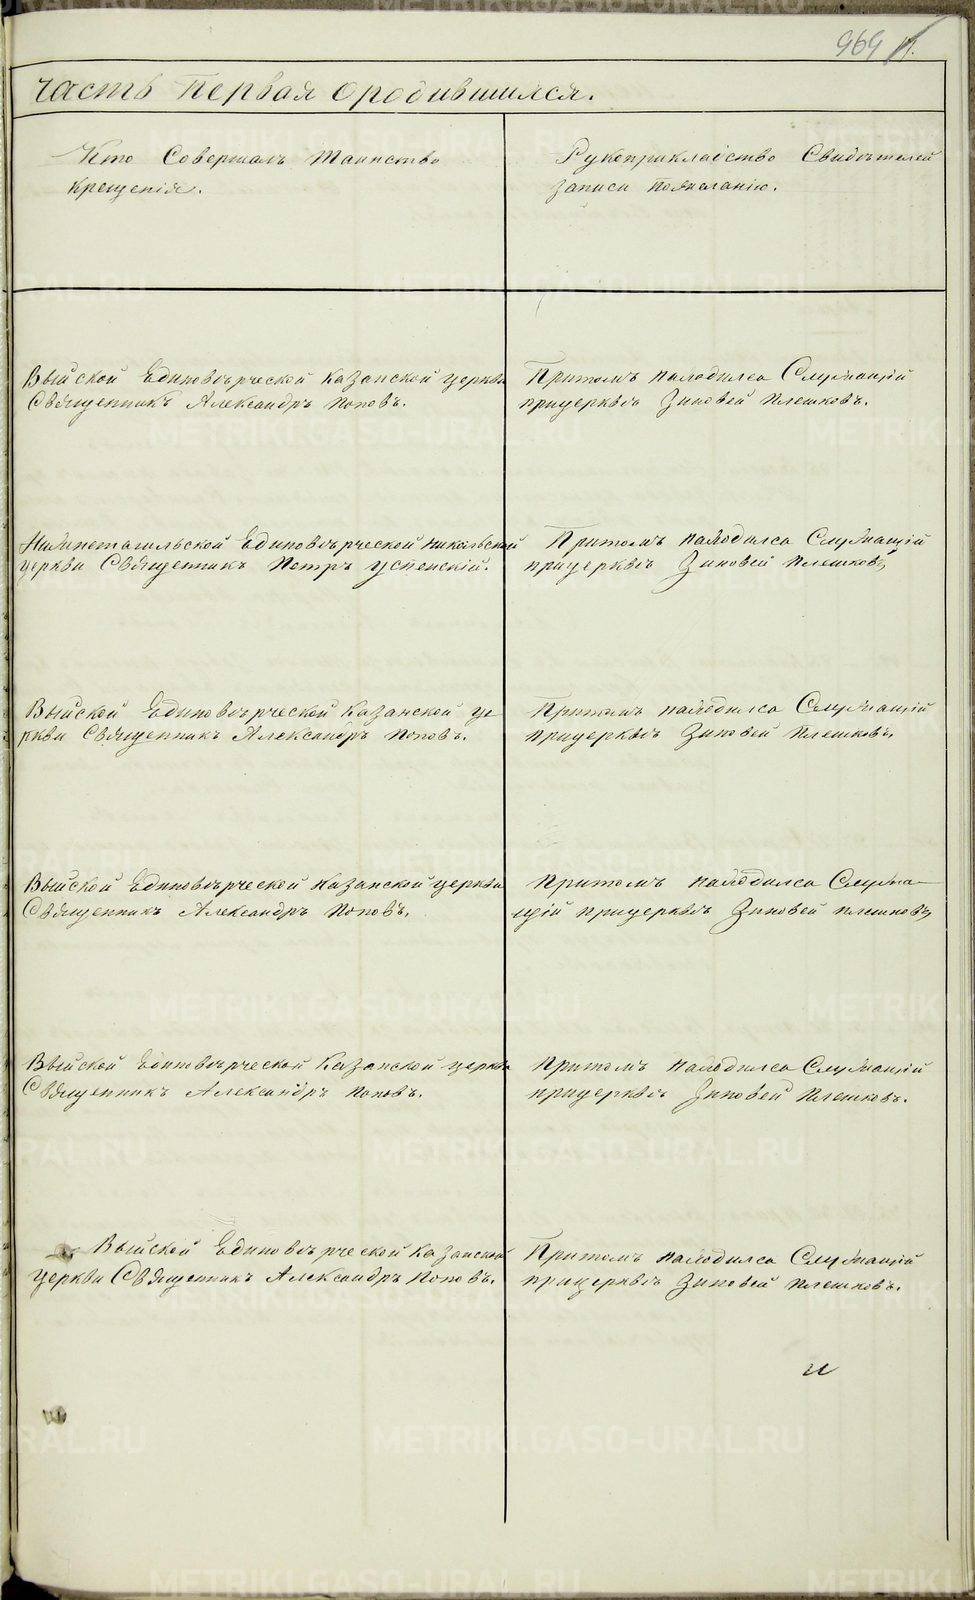 969
Часть Первая о родившимся.
Кто Совершалъ Таинство
Крещенія.
Рукоприкладство Свидѣтелей
записи По желанію.
Выйской Единовѣрческой Казанской церкви
Священникъ Александръ Поповъ.
Притомъ находилса Служащій
прицерквѣ Зиновей Плешковъ.
Нижнетагильской Единовѣрческой Никольской
церкви Священникъ Петръ Успенскій.
Притомъ находилса Служащій
прицерквѣ Зиновей Плешковъ
Выйской Единовѣрческой Казанской це
ркви Священникъ Александръ Поповъ.
Притомъ находилса Служащій
прицерквѣ Зиновей Плешковъ.
Выйской Единовѣрческой Казанской церкви
Священникъ Александръ Поповъ.
Притомъ находилса Служа-
щій прицерквѣ Зиновей Плешковъ
Выйской Единовѣрческой Казанской церкви
Священникъ Александръ Поповъ.
Притомъ находилса Служащій
прицерквѣ Зиновей Плешковъ.
Выйской Единовѣрческой Казанской
церкви Священникъ Александръ Поповъ.
Притомъ находилса Служащій
прицерквѣ Зиновей Плешковъ.
и
METRIKI.GASO-URAL.RU